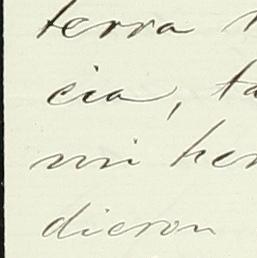 terra
cia, ta
mi her
dieron